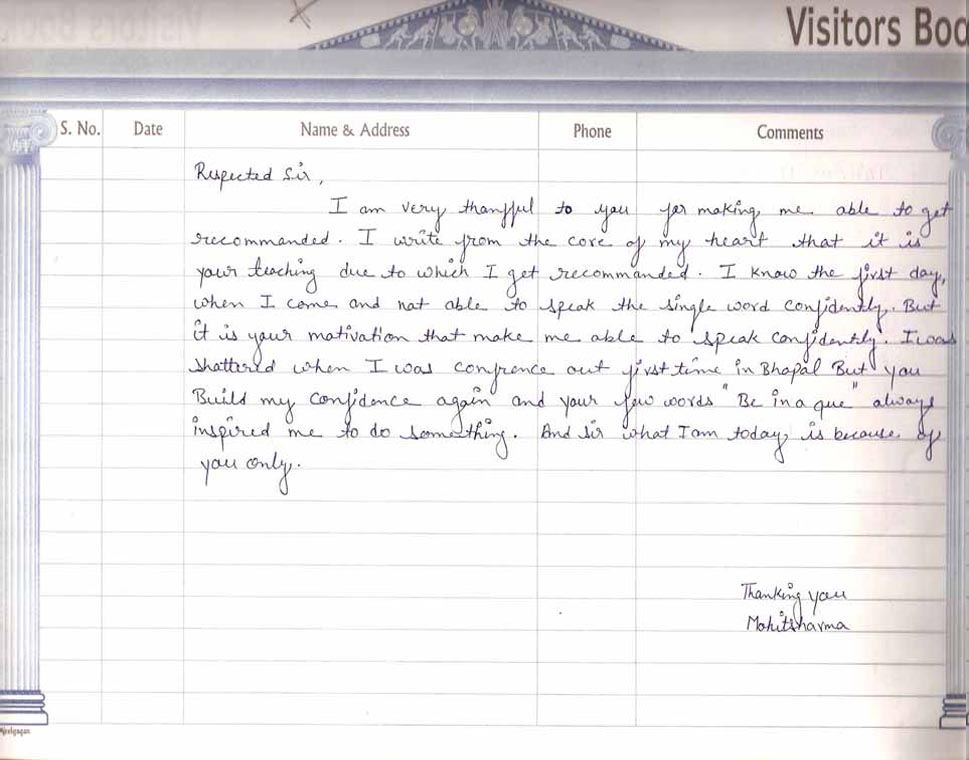 Visitors Boo
S. No. Date Name & Address Phone Comments
Respected Sir,
I am very thankful to you for making me able to get
recommanded. I write from the core of my heart that it is
your teaching due to which I get recommanded. I know the first day,
when I come and not able to speak the single word confidently. But
it is your motivation that make me able to speak confidently. I was
shattered when I was confrence out first time in Bhopal But you
Build my confidence again and your few words "Be in a que" always
inspired me to do something. And sir what I am today, is because of
you only.
Thanking you
Mohit Sharma
Neelgagan